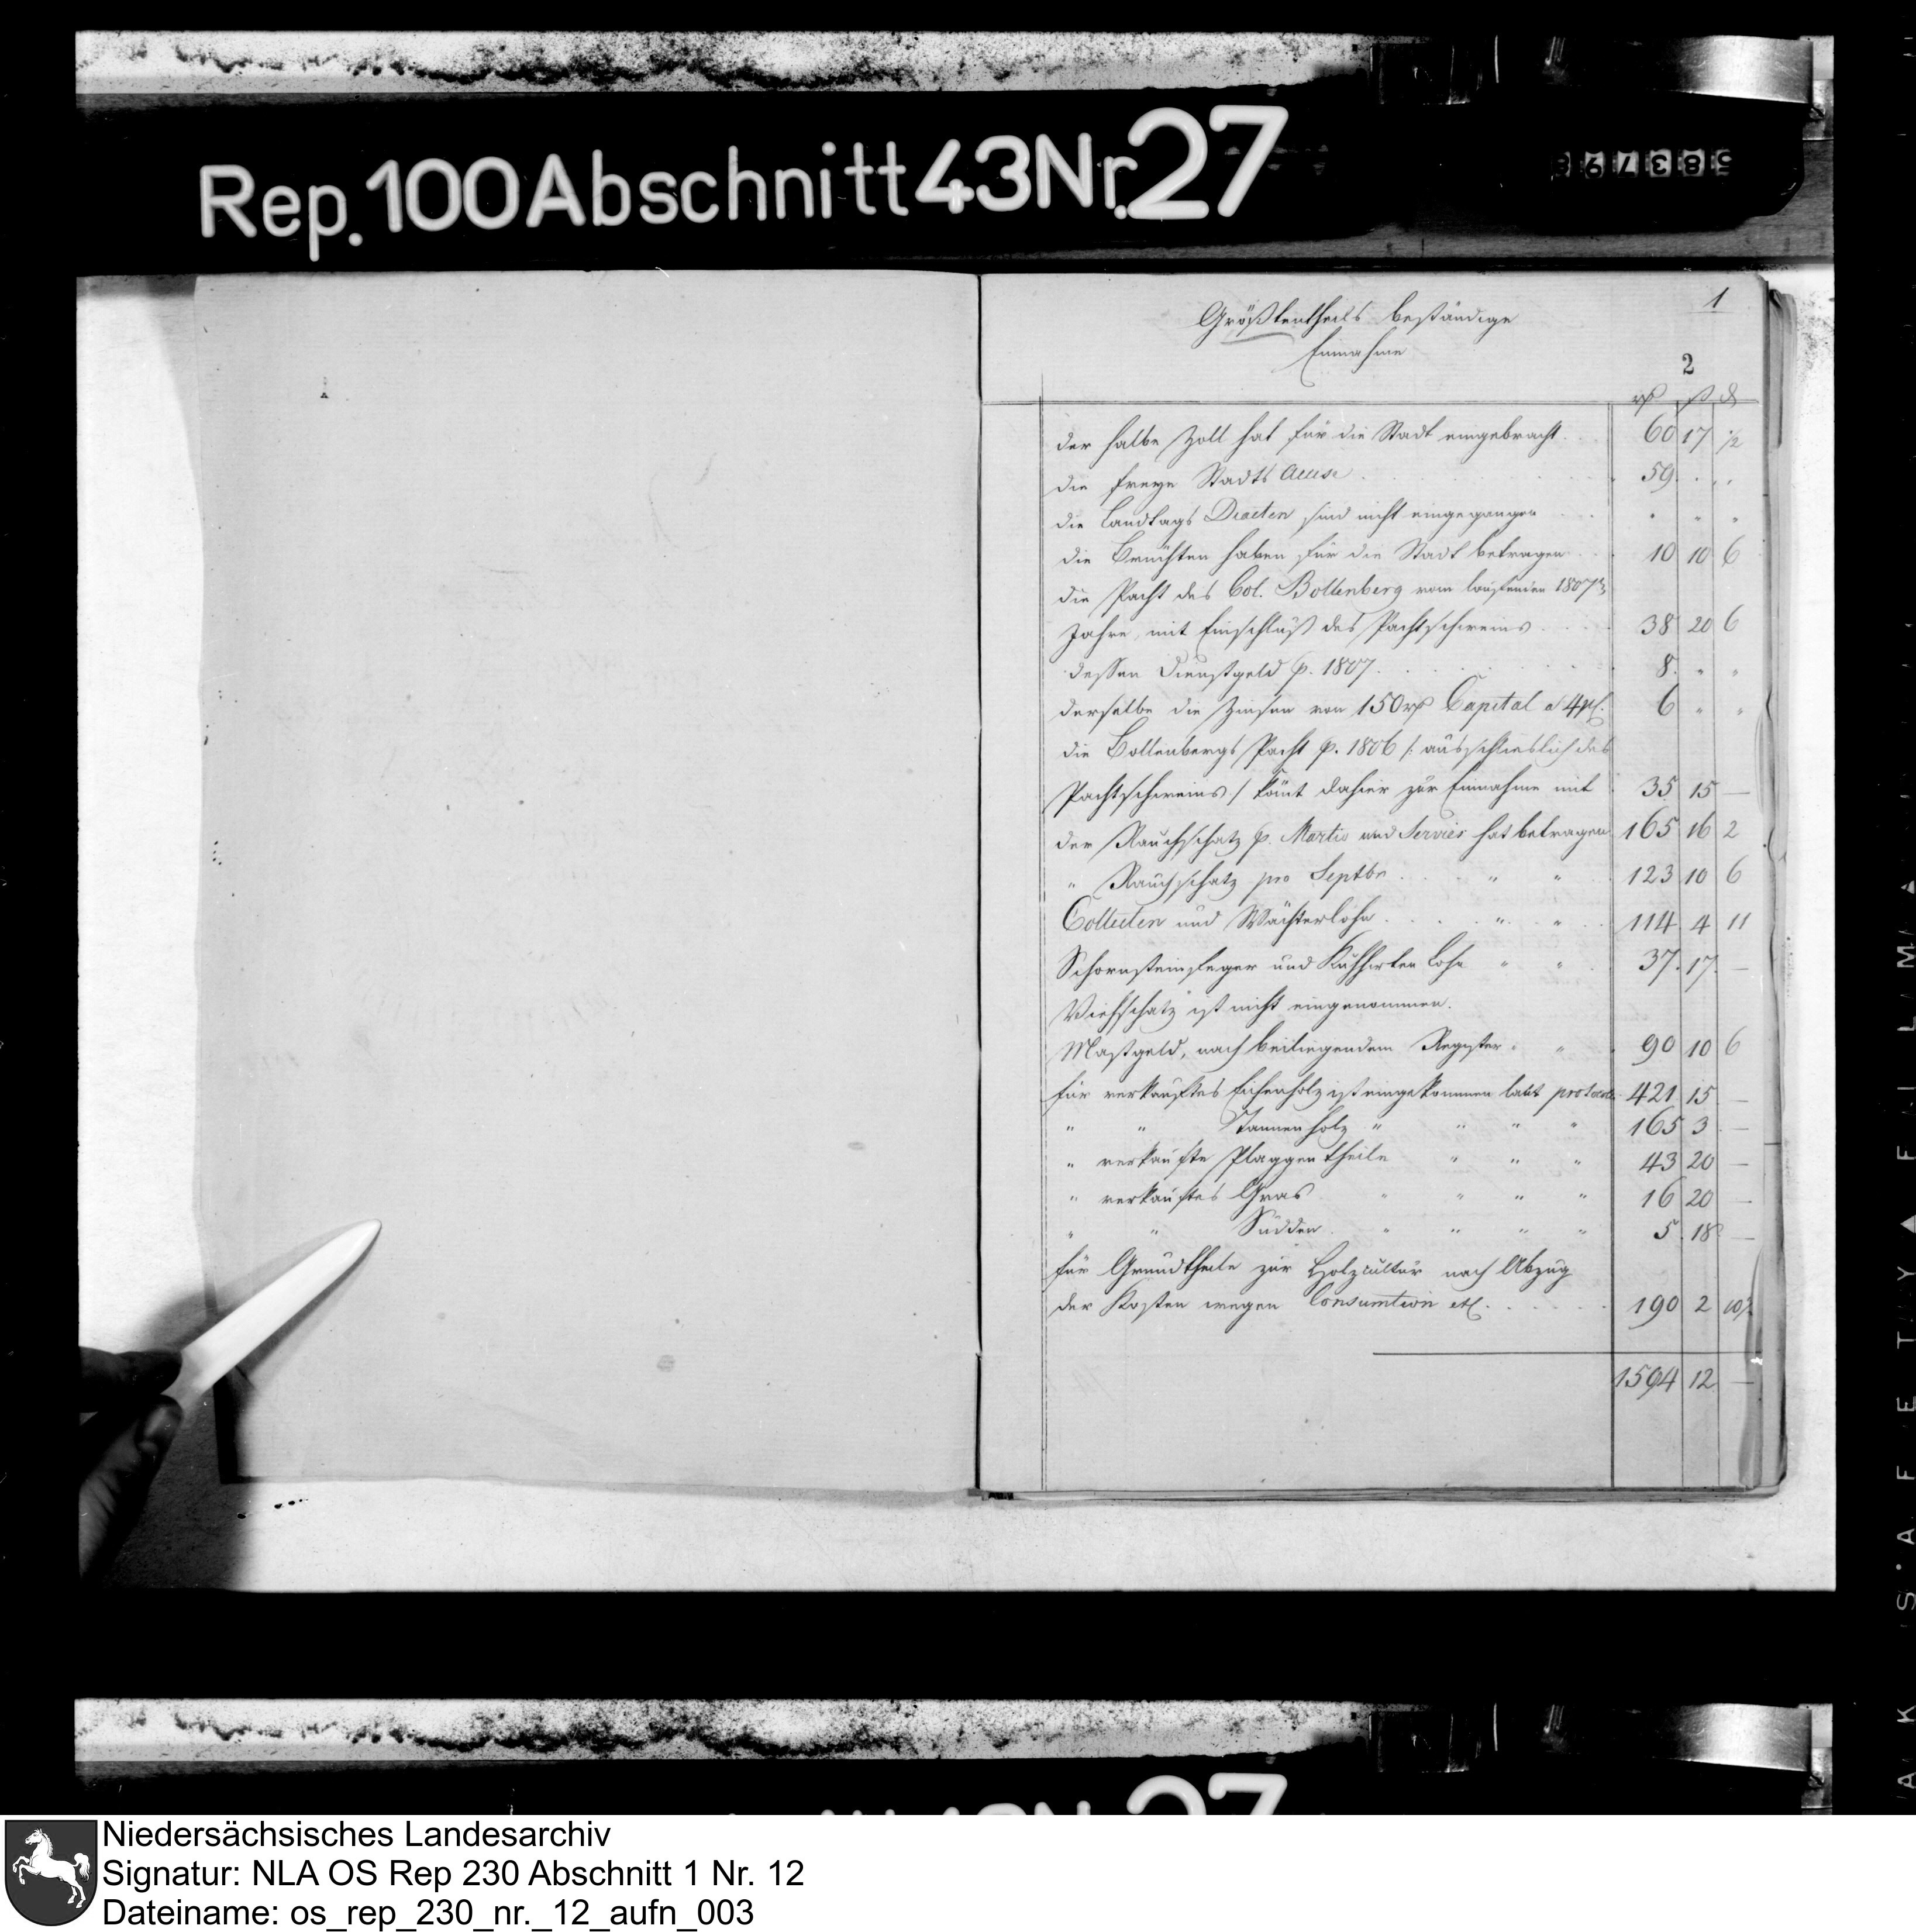 Rep. 100 Abschnitt 43 Nr. 27
1
Größtentheils beständige
Einnahme
2
der halbe Zoll hat für die Stadt eingebracht 60 17 ½
die freye Stadts Accise 59 " "
die Landtags Diaeten sind nicht eingegangen " " "
die Brüchten haben für die Stadt betragen 10 10 6
die Pacht des Col. Bollenberg vom laufenden 1807
Jahre, mit Einschluß des Pachtschweins 38 20 6
dessen Dienstgeld p. 1807. 8 " "
derselbe die Zinsen von 150 Capital a 4 6 " "
die Bollenbergs Pacht p. 1806 /: ausschlieslich des
Pachtschweins / kömt dahier zur Einnahme mit 35 15 —
der Rauchschatz p. Martio und Servies hat betragen 165 16 2
" Rauchschatz pro Septbr " " 123 10 6
Collecten und Wächterlohn " " 114 4 11
Schornsteinfeger und Kuhhirten Lohn " " 37 17 —
Viehschatz ist nicht eingenommen.
Mastgeld, nach beiliegendem Register " " 90 10 6
für verkauftes Eichenholz ist eingekommen laut 421 15 —
" " Tannenholz " " " " 165 3 —
" verkaufte Plaggentheile " " " 43 20 —
" verkauftes Gras " " " " 16 20 —
" " Sudden " " " " 5 18 —
für Grundtheile zur Holzcultur nach Abzug
der Kosten wegen Consumtion etc. 190 2 10½
1594 12 —
Niedersächsisches Landesarchiv
Signatur: NLA OS Rep 230 Abschnitt 1 Nr. 12
Dateiname: os_rep_230_nr._12_aufn_003